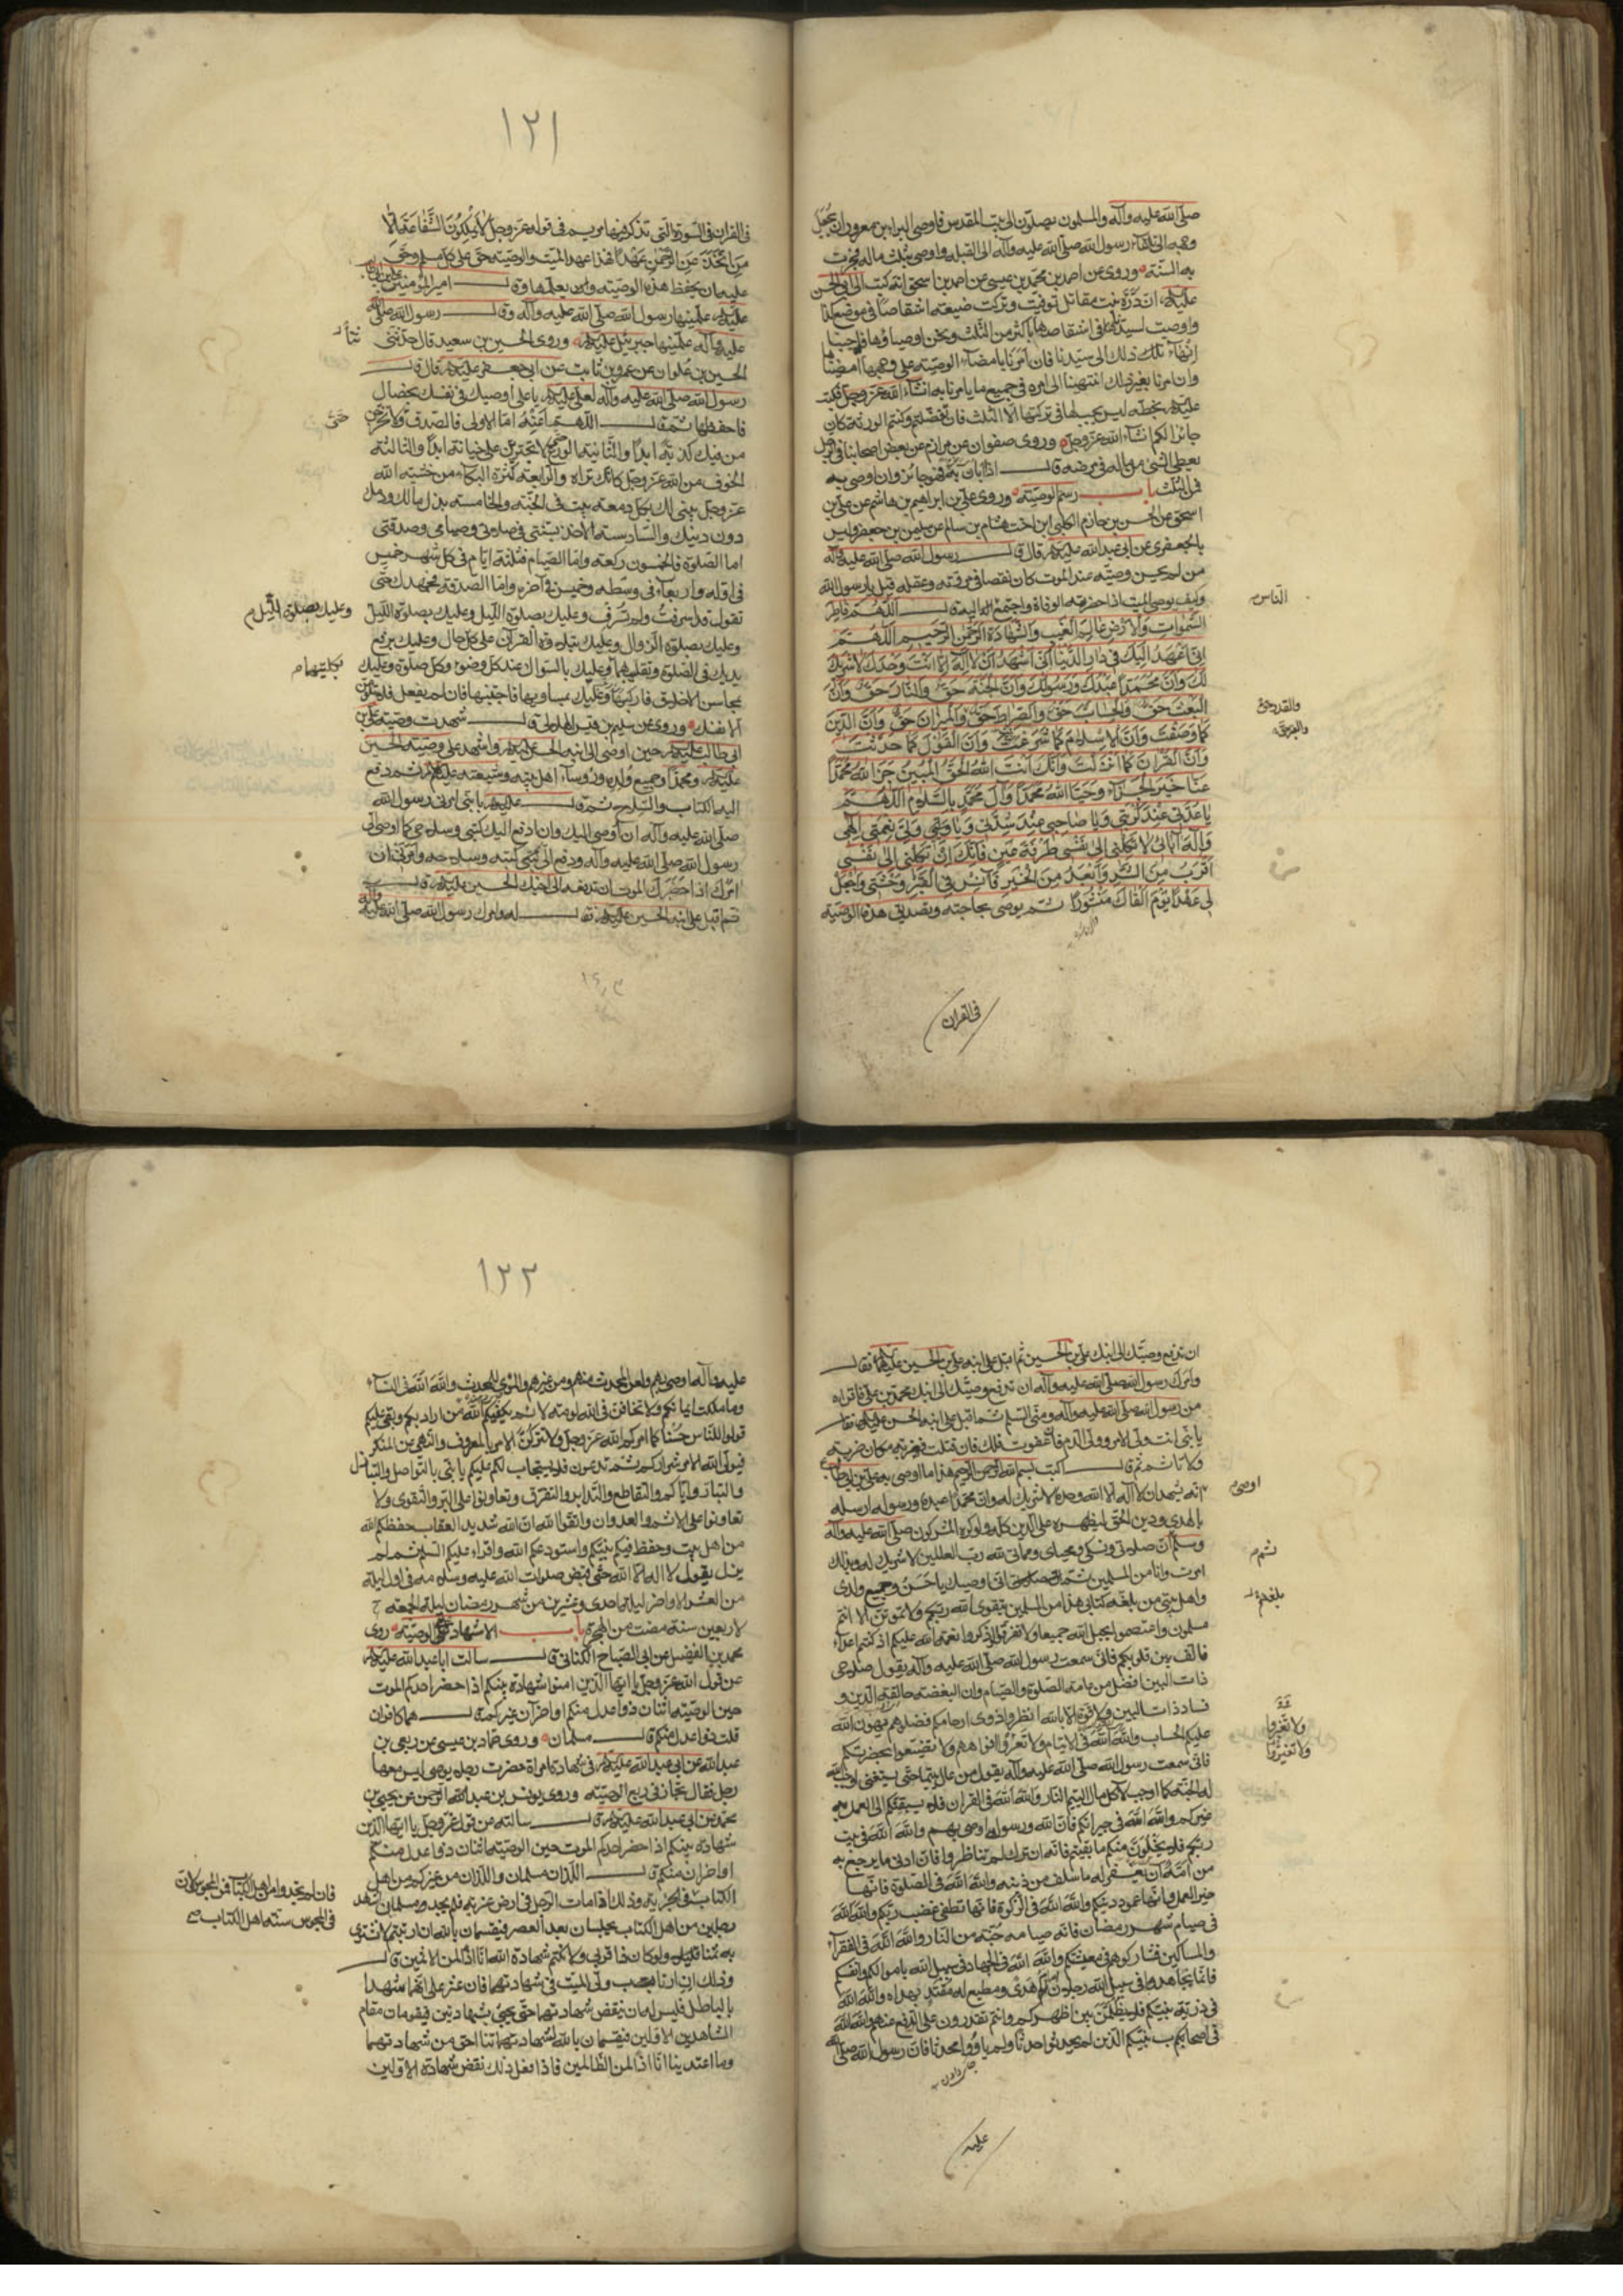 صلى الله عليه وآله والمسلمون يصلون الى بيت المقدس فاوصى البراء بن معرور ان يجعل
وجهه الى تلقاء رسول الله صلى الله عليه وآله الى القبلة واوصى بثلث ماله فجرت
به السنة وروى عن احمد بن محمد بن عيسى عن احمد بن اسحق انه كتب الى ابى الحسن
عليه ان درة بنت مقاتل توفيت وتركت ضيعة اشقاصا فى موضع كذا
واوصت لسيدنا فى اشقاصها باكثر من الثلث ونحن اوصياؤها فاحببنا
انهاء ذلك الى سيدنا فان امرنا بامضاء الوصية على وجهها امضيناها
وان امرنا بغير ذلك انتهينا الى امره فى جميع ما يامرنا به انشاء الله عز وجل فكتب
عليه بخطه ليس يجب لها فى تركتها الا الثلث فان تفضلتم وكنتم الورثة كان
جائزا لكم انشاء الله عز وجل وروى صفوان عن مرازم عن بعض اصحابنا فى الرجل
يعطى الشئ من ماله فى مرضه قال اذا ابان به فهو جائز وان اوصى به
فمن الثلث باب رسم الوصية وروى على بن ابراهيم بن هاشم عن على بن
اسحق عن الحسن بن حازم الكلبى ابن اخت هشام بن سالم عن سليمن بن جعفر وليس
بالجعفرى عن ابى عبد الله عليه قال قال رسول الله صلى الله عليه وآله
من لم يحسن وصيته عند الموت كان نقصا فى مروته وعقله قيل يا رسول الله
وكيف يوصى الميت اذا حضرته الوفاة واجتمع اليه قال اللهم فاطر
الناس
السموات والارض عالم الغيب والشهادة الرحمن الرحيم اللهم
انى اعهد اليك فى دار الدنيا انى اشهد ان لا اله الا انت وحدك لا شريك
لك وان محمدا عبدك ورسولك وان الجنة حق والنار حق وان
البعث حق والحساب حق والصراط حق والميزان حق وان الدين
والقدر حق
كما وصفت وان الاسلام كما شرعت وان القول كما حدثت
وان القرآن كما انزلت وانك انت الله الحق المبين جزى الله محمدا
عنا خير الجزاء وحيا الله محمدا وآل محمد بالسلام اللهم
يا عدتى عند كربتى ويا صاحبى عند شدتى ويا وليى ولى نعمتى الهى
واله آبائى لا تكلنى الى نفسى طرفة عين فانك ان تكلنى الى نفسى
اقرب من الشر وابعد من الخير فآنس فى القبر وحشتى واجعل
لى عهدا يوم القاك منشورا ثم يوصى بحاجته وتصديق هذه الوصية
فى القران
١٢١
فى القران فى السورة التى تذكر فيها مريم فى قوله عز وجل لا يملكون الشفاعة الا
من اتخذ عند الرحمن عهدا فهذا عهد الميت والوصية حق على كل مسلم وحق
عليه ان يحفظ هذه الوصية وان يعلمها وقال امير المؤمنين على بن ابى طالب
عليه علمنيها رسول الله صلى الله عليه وآله وقال رسول الله صلى الله
عليه وآله علمنيها جبرئيل عليه وروى الحسين بن سعيد قال حدثنى
الحسين بن علوان عن عمرو بن ثابت عن ابى جعفر عليه قال قال
رسول الله صلى الله عليه وآله لعلى عليه يا على اوصيك فى نفسك بخصال
فاحفظها ثم قال اللهم اعنه اما الاولى فالصدق ولا تخرجن
من فيك كذبة ابدا والثانية الورع لا تجترين على خيانة ابدا والثالثة
الخوف من الله عز وجل كانك تراه والرابعة كثرة البكاء من خشية الله
عز وجل يبنى لك بكل دمعة بيت فى الجنة والخامسة بذل مالك ودمك
دون دينك والسادسة الاخذ بسنتى فى صلاتى وصيامى وصدقتى
اما الصلوة فالخمسون ركعة واما الصيام فثلثة ايام فى كل شهر خميس
فى اوله واربعاء فى وسطه وخميس فى آخره واما الصدقة فجهدك حتى
تقول قد اسرفت ولم تسرف وعليك بصلوة الليل وعليك بصلوة الليل
وعليك بصلوة الليل
وعليك بصلوة الزوال وعليك بتلاوة القرآن على كل حال وعليك برفع
يديك فى الصلوة وتقليبهما وعليك بالسواك عند كل وضوء وكل صلوة وعليك
بكلتيهما
بمحاسن الاخلاق فاركبها وعليك بمساويها فاجتنبها فان لم تفعل فلا تلومن
الا نفسك وروى عن سليم بن قيس الهلالى قال شهدت وصية على بن
ابى طالب عليه حين اوصى الى ابنه الحسن عليه واشهد على وصيته الحسين
عليه ومحمدا وجميع ولده ورؤساء اهل بيته وشيعته عليهم ثم دفع
اليه الكتاب والسلاح ثم قال عليه يا بنى امرنى رسول الله
صلى الله عليه وآله ان اوصى اليك وان ادفع اليك كتبى وسلاحى كما اوصى الى
رسول الله صلى الله عليه وآله ودفع الى كتبه وسلاحه وامرنى ان
آمرك اذا حضرك الموت ان تدفعه الى اخيك الحسين عليه قال
ثم اقبل على ابنه الحسين عليه فقال له وامرك رسول الله صلى الله عليه وآله
ان تدفع وصيتك الى ابنك على بن الحسين ثم اقبل على ابنه على بن الحسين عليهما فقال
وامرك رسول الله صلى الله عليه وآله ان تدفع وصيتك الى ابنك محمد بن على فاقراه
من رسول الله صلى الله عليه وآله ومنى السلم ثم اقبل على ابنه الحسن عليه فقال
يا بنى انت ولى الامر وولى الدم فان عفوت فلك فان قتلت فضربة مكان ضربة
ولا تاثم ثم قال اكتب بسم الله الرحمن الرحيم هذا ما اوصى به على بن ابى طالب
اوصى
انه يشهد ان لا اله الا الله وحده لا شريك له وان محمدا عبده ورسوله ارسله
بالهدى ودين الحق ليظهره على الدين كله ولو كره المشركون صلى الله عليه وآله
وسلم ان صلاتى ونسكى ومحياى ومماتى لله رب العالمين لا شريك له وبذلك
ثم
امرت وانا من المسلمين ثم انى اوصيك يا حسن وجميع ولدى
واهل بيتى من بلغه كتابى هذا من المسلمين بتقوى الله ربكم ولا تموتن الا وانتم
مسلمون واعتصموا بحبل الله جميعا ولا تفرقوا واذكروا نعمة الله عليكم اذ كنتم اعداء
فالف بين قلوبكم فانى سمعت رسول الله صلى الله عليه وآله يقول صلاح
ذات البين افضل من عامة الصلوة والصيام وان البغضة حالقة الدين و
فساد ذات البين ولا قوة الا بالله انظروا ذوى ارحامكم فصلوهم يهون الله
عليكم الحساب والله الله فى الايتام ولا تعروا افواههم ولا تضيعوا بحضرتكم
ولا تغيروا
ولا تغيروا
فانى سمعت رسول الله صلى الله عليه وآله يقول من عال يتيما حتى يستغنى اوجب الله
له الجنة كما اوجب لآكل مال اليتيم النار والله الله فى القران فلا يسبقكم الى العمل به
غيركم والله الله فى جيرانكم فان الله ورسوله اوصى بهم والله الله فى بيت
ربكم فلا يخلون منكم ما بقيتم فانه ان ترك لم تناظروا فان ادنى ما يرجع به
من امه ان يغفر له ما سلف من ذنبه والله الله فى الصلوة فانها
خير العمل وانها عمود دينكم والله الله فى الزكوة فانها تطفئ غضب ربكم والله الله
فى صيام شهر رمضان فان صيامه جنة من النار والله الله فى الفقراء
والمساكين فشاركوهم فى معيشتكم والله الله فى الجهاد فى سبيل الله باموالكم وانفسكم
فانما يجاهد فى سبيل الله رجلان امام هدى ومطيع له مقتد بهداه والله الله
فى ذرية نبيكم فلا يظلمن بين اظهركم وانتم تقدرون على الدفع عنهم والله الله
فى اصحاب نبيكم الذين لم يحدثوا حدثا ولم ياووا محدثا فان رسول الله صلى الله
عليه
١٢٢
عليه وآله اوصى بهم ولعن المحدث منهم ومن غيرهم والمؤوى للمحدث والله الله فى النساء
وما ملكت ايمانكم ولا تخافن فى الله لومة لائم يكفيكم الله من ارادكم وبغى عليكم
قولوا للناس حسنا كما امركم الله عز وجل ولا تتركن الامر بالمعروف والنهى عن المنكر
فيولى الله الامر شراركم ثم تدعون فلا يستجاب لكم عليكم يا بنى بالتواصل والتباذل
والتبار واياكم والتقاطع والتدابر والتفرق وتعاونوا على البر والتقوى ولا
تعاونوا على الاثم والعدوان واتقوا الله ان الله شديد العقاب حفظكم الله
من اهل بيت وحفظ فيكم نبيكم واستودعكم الله واقراء عليكم السلم ثم لم
يزل يقول لا اله الا الله حتى قبض صلوات الله عليه وسلامه فى اول ليلة
من العشر الاواخر ليلة احدى وعشرين من شهر رمضان ليلة الجمعة
لاربعين سنة مضت من الهجرة باب الاشهاد على الوصية روى
محمد بن الفضيل عن ابى الصباح الكنانى قال سالت ابا عبد الله عليه
عن قول الله عز وجل يا ايها الذين امنوا شهادة بينكم اذا حضر احدكم الموت
حين الوصية اثنان ذوا عدل منكم او آخران من غيركم قال هما كافران
قلت ذوا عدل منكم قال مسلمان وروى حماد بن عيسى عن ربعى بن
عبد الله عن ابى عبد الله عليه فى شهادة امراة حضرت رجلا يوصى ليس معها
رجل فقال يجاز فى ربع الوصية وروى يونس بن عبد الرحمن عن يحيى بن
محمد عن ابى عبد الله عليه قال سالته عن قول الله عز وجل يا ايها الذين
شهادة بينكم اذا حضر احدكم الموت حين الوصية اثنان ذوا عدل منكم
او آخران من غيركم قال اللذان منكم مسلمان واللذان من غيركم من اهل
الكتاب وذلك اذا مات الرجل فى ارض غربة فلم يجد مسلمين اشهد
فان لم تجدوا من اهل الكتاب فمن المجوس لان
فى المجوس سنة اهل الكتاب
رجلين من اهل الكتاب يحبسان بعد العصر فيقسمان بالله ان ارتبتم لا نشترى
به ثمنا قليلا ولو كان ذا قربى ولا نكتم شهادة الله انا اذا لمن الاثمين قال
وذلك ان ارتاب ولى الميت فى شهادتهما فان عثر على انهما شهدا
بالباطل فليس له ان ينقض شهادتهما حتى يجئ بشاهدين فيقومان مقام
الشاهدين الاولين فيقسمان بالله لشهادتنا احق من شهادتهما
وما اعتدينا انا اذا لمن الظالمين فاذا فعل ذلك نقض شهادة الاولين